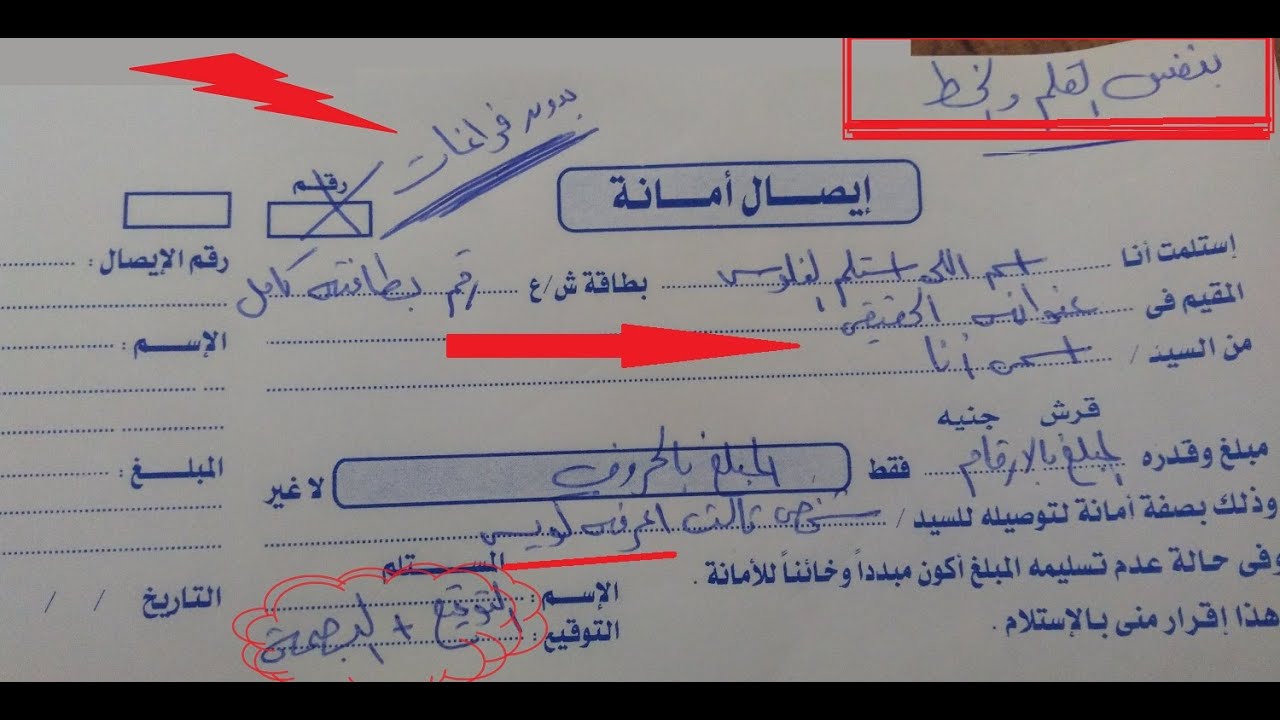 بنفس القلم والخط
بدون فراغات
رقم
إيصال أمانة
إستلمت أنا اسم اللي استلم الفلوس بطاقة ش/ع رقم بطاقته كامل
المقيم فى عنوانه الحقيقي
من السيد / اسمي أنا
قرش جنيه
مبلغ وقدره المبلغ بالارقام فقط المبلغ بالحروف لا غير
وذلك بصفة أمانة لتوصيله للسيد / شخص تالت اعرفه كويس
وفى حالة عدم تسليمه المبلغ أكون مبدداً وخائناً للأمانة .
هذا إقرار منى بالإستلام .
المستلم
الإسم :
التوقيع : التوقيع + البصمة
رقم الإيصال :
الإسم :
المبلغ :
التاريخ / /